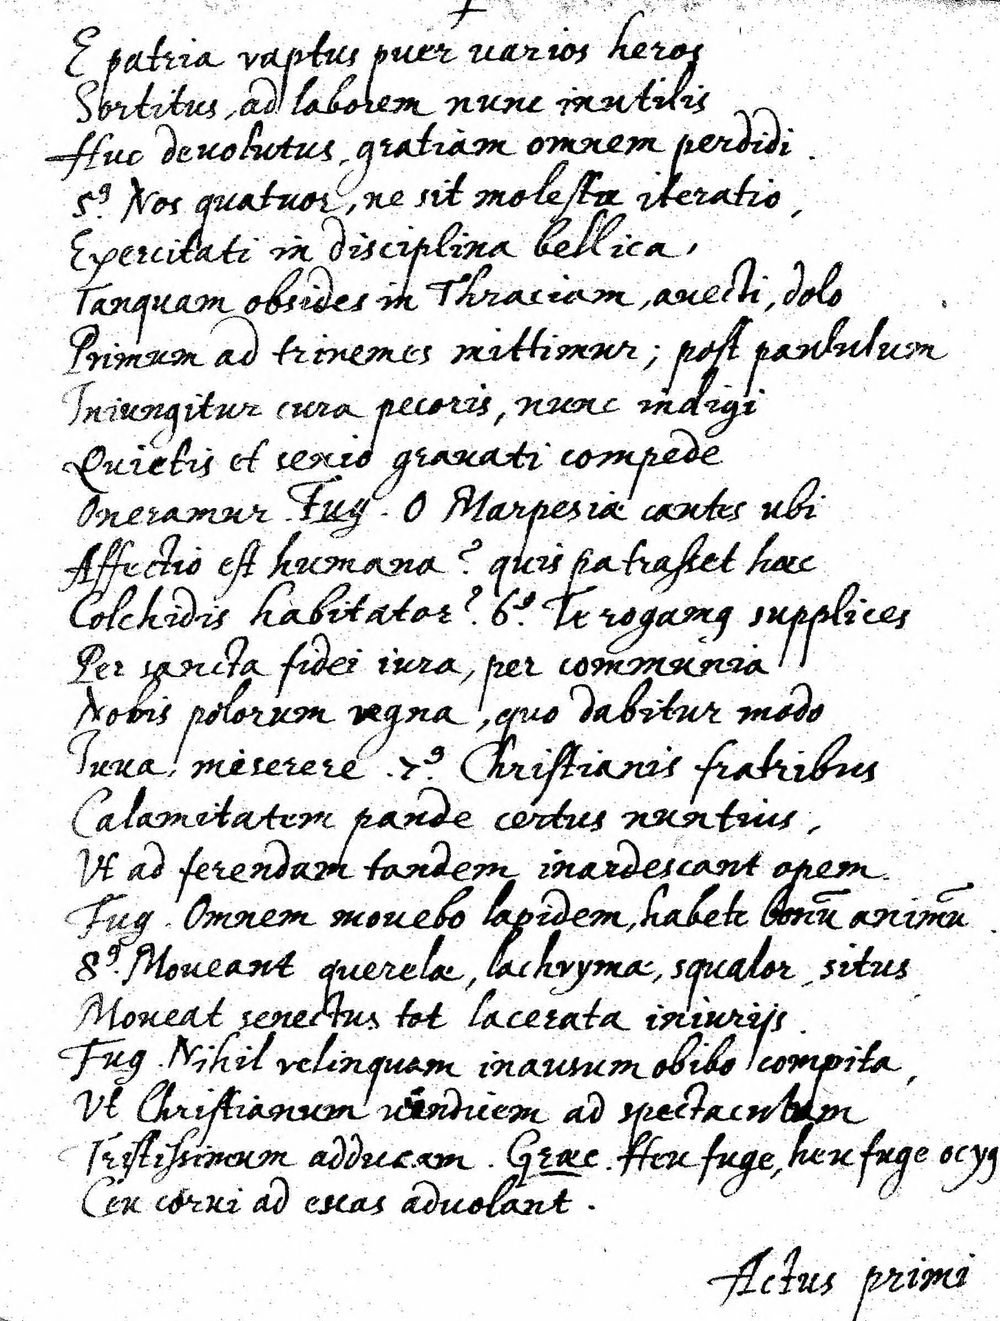 E patria raptus puer varios heros
Sortitus, ad laborem nunc inutilis
Huc deuolutus, gratiam omnem perdidi.
5⁹. Nos quatuor, ne sit molesta iteratio,
Exercitati in disciplina bellica,
Tanquam obsides in Thraciam, auecti, dolo
Primum ad triremes mittimur; post paululum
Iniungitur cura pecoris, nunc indigi
Quietis et senio grauati compede
Oneramur. Fug. O Marpesiæ cautes ubi
Affectio est humana? quis patrasset hæc
Colchidis habitator? 6⁹. Te rogamꝰ supplices
Per sancta fidei iura, per communia
Nobis polorum regna, quo dabitur modo
Iuua, miserere. 7⁹. Christianis fratribus
Calamitatem pande certus nuntius,
Vt ad ferendam tandem inardescant opem.
Fug. Omnem mouebo lapidem, habete bonū animū.
8⁹. Moueant querelæ, lachrymæ, squalor, situs
Moueat senectus tot lacerata iniurijs.
Fug. Nihil relinquam inausum obibo compita,
Vt Christianum uindicem ad spectaculum
Tristissimum adducam. Græc. Heu fuge, heu fuge ocyꝰ
Ceu corui ad escas aduolant.
Actus primi